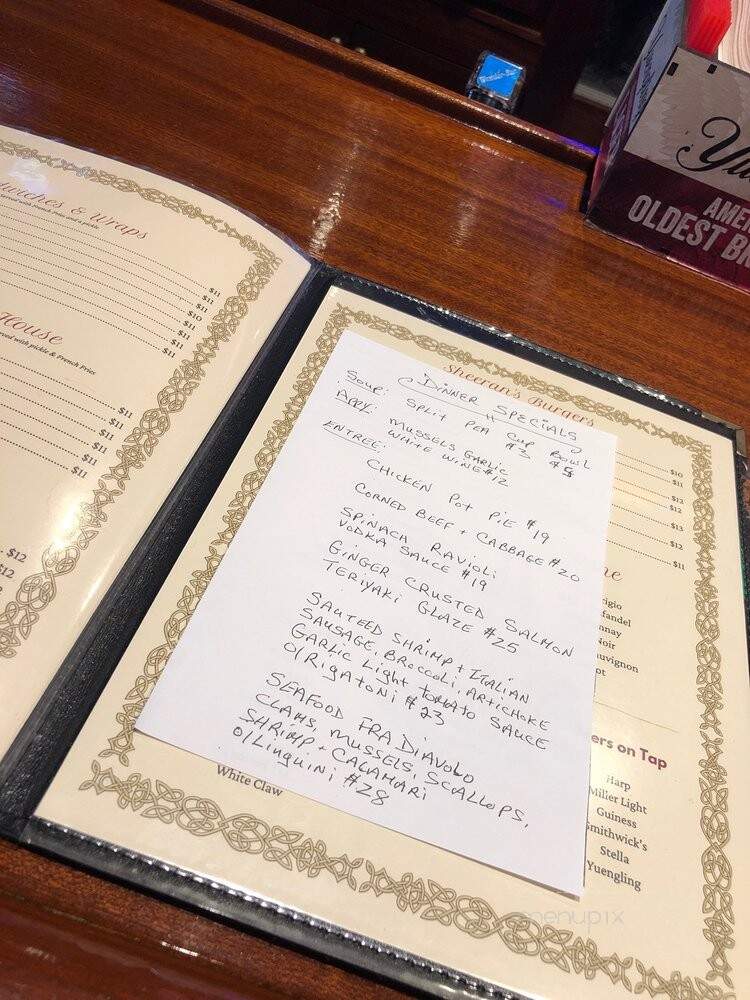 dwiches & Wraps
Served with French Fries and a pickle
$11
$11
$10
$11
$11
$11
House
served with pickle & French Fries
$11
$11
$11
$11
$11
$11
$12
$12
Sheeran's Burgers
$10
$11
$12
$12
$13
$12
$11
DINNER SPECIALS
SOUP: SPLIT PEA CUP #3 BOWL #5
APPY: MUSSELS GARLIC
WHITE WINE #12
ENTREE:
CHICKEN POT PIE #19
CORNED BEEF + CABBAGE #20
SPINACH RAVIOLI
VODKA SAUCE #19
GINGER CRUSTED SALMON
TERIYAKI GLAZE #25
SAUTEED SHRIMP + ITALIAN
SAUSAGE, BROCCOLI, ARTICHOKE
GARLIC LIGHT TOMATO SAUCE
O/RIGATONI #23
SEAFOOD FRA DIAVOLO
CLAMS, MUSSELS, SCALLOPS,
SHRIMP + CALAMARI
O/LINGUINI #28
ne
rigio
fandel
nnay
Noir
auvignon
ot
ers on Tap
Harp
Miller Light
Guiness
Smithwick's
Stella
Yuengling
White Claw
Yu
AMER
OLDEST BR
menupix